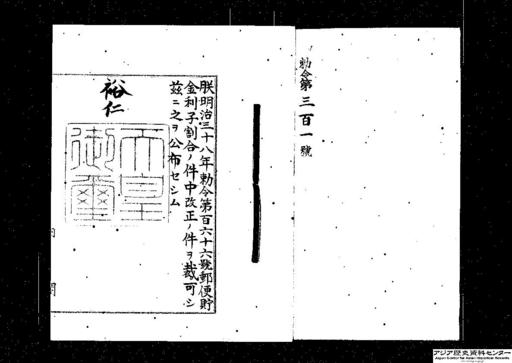 勅令第三百一號
朕明治三十八年勅令第百六十六號郵便貯
金利子割合ノ件中改正ノ件ヲ裁可シ
茲ニ之ヲ公布セシム
裕仁
天皇
御璽
内 閣
アジア歴史資料センター
Japan Center for Asian Historical Records